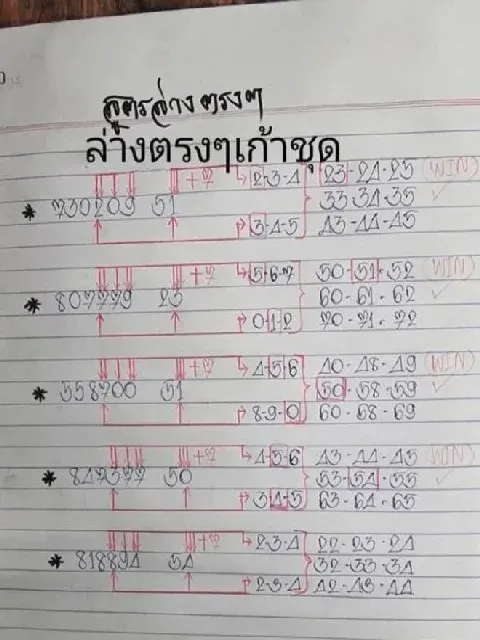 สูตรล่างตรงๆ
ล่างตรงๆเก้าชุด
2-3-4 23-24-25 (WIN)
* 730209 51 33-34-35 ✓
3-4-5 43-44-45
5-6-7 50-51-52 (WIN)
* 807779 23 60-61-62 ✓
0-1-2 70-71-72
4-5-6 40-48-49 (WIN)
* 558700 51 50-58-59 ✓
8-9-0 60-68-69
4-5-6 43-44-45 (WIN)
* 847377 50 53-54-55 ✓
3-4-5 63-64-65
2-3-4 22-23-24
* 818894 54 32-33-34
2-3-4 42-43-44